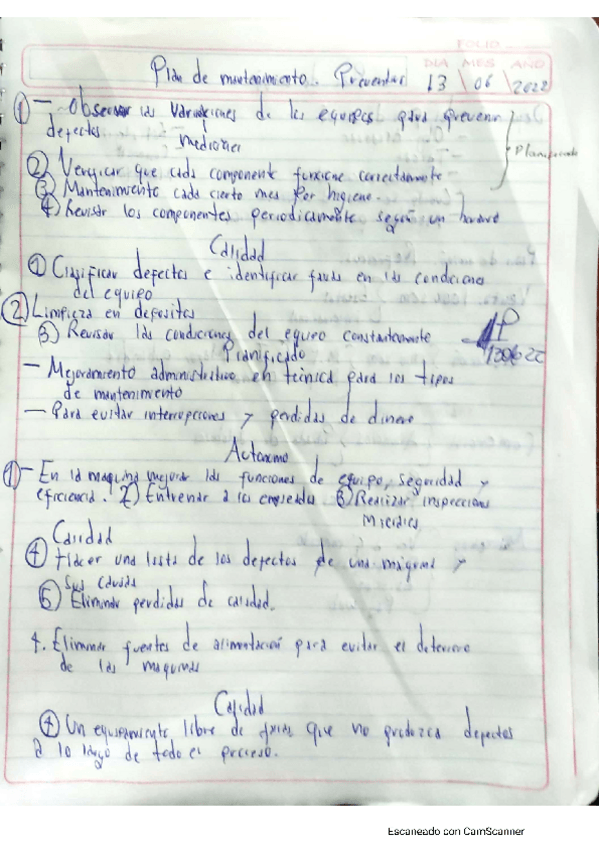 FOLIO
DIA MES AÑO
Plan de mantenimiento. Preventivo 13 \ 06 \ 2022
① - Observar las variaciones de los equipos para prevenir
defectos - mediones
Planificado
② Verificar que cada componente funcione correctamente
③ Mantenimiento cada cierto mes por higiene.
④ Revisar los componentes periodicamente según un horario
Calidad
① Clasificar defectos e identificar fallas en las condiciones
del equipo
② Limpieza en depositos
③ Revisar las condiciones del equipo constantemente
Planificado
- Mejoramiento administrativo en tecnica para los tipos
de mantenimiento
- Para evitar interrupciones y perdidas de dinero
Autonomo
① - En la maquina mejorar las funciones de equipo, seguridad y
eficiencia. 2) Entrenar a los empleados ③ Realizar inspecciones
Calidad
④ Hacer una lista de los defectos de una máquina y
sus causas
⑤ Eliminar perdidas de calidad.
4. Eliminar fuentes de alimentación para evitar el deterioro
de las maquinas
Calidad
④ Un equipamiento libre de fallas que no produzca defectos
a lo largo de todo el proceso.
Escaneado con CamScanner